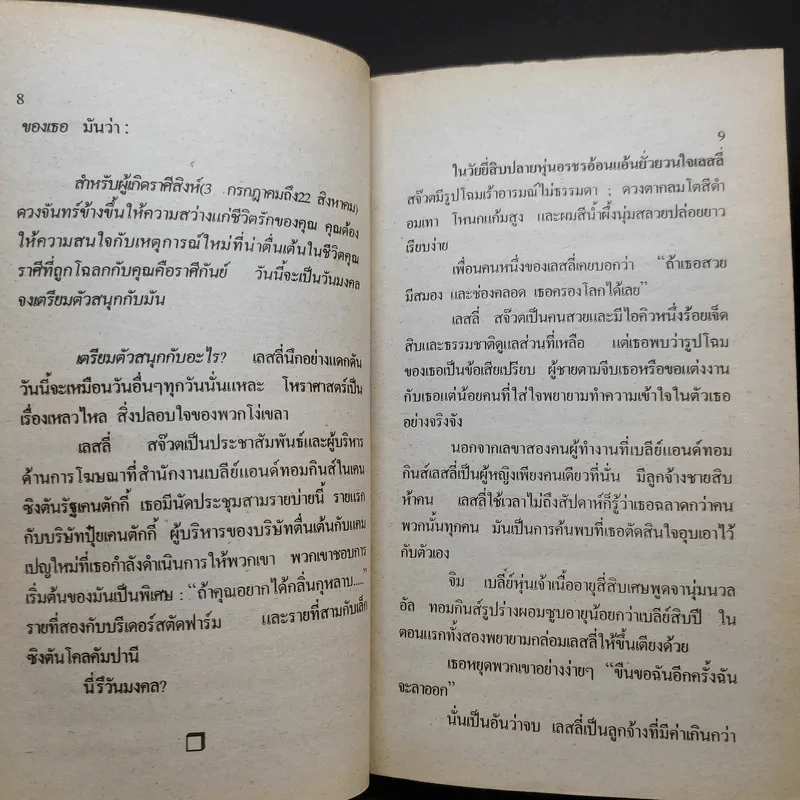 8
ของเธอ มันว่า :
สำหรับผู้เกิดราศีสิงห์(3 กรกฎาคมถึง22 สิงหาคม)
ดวงจันทร์ข้างขึ้นให้ความสว่างแก่ชีวิตรักของคุณ คุณต้อง
ให้ความสนใจกับเหตุการณ์ใหม่ที่น่าตื่นเต้นในชีวิตคุณ
ราศีที่ถูกโฉลกกับคุณคือราศีกันย์ วันนี้จะเป็นวันมงคล
จงเตรียมตัวสนุกกับมัน
เตรียมตัวสนุกกับอะไร? เลสลี่นึกอย่างแดกดัน
วันนี้จะเหมือนวันอื่นๆทุกวันนั่นแหละ โหราศาสตร์เป็น
เรื่องเหลวไหล สิ่งปลอบใจของพวกโง่เขลา
เลสลี่ สจ๊วตเป็นประชาสัมพันธ์และผู้บริหาร
ด้านการโฆษณาที่สำนักงานเบลีย์แอนด์ทอมกินส์ในเคน
ซิงตันรัฐเคนตักกี้ เธอมีนัดประชุมสามรายบ่ายนี้ รายแรก
กับบริษัทปุ๋ยเคนตักกี้ ผู้บริหารของบริษัทตื่นเต้นกับแคม
เปญใหม่ที่เธอกำลังดำเนินการให้พวกเขา พวกเขาชอบการ
เริ่มต้นของมันเป็นพิเศษ : “ถ้าคุณอยากได้กลิ่นกุหลาบ....”
รายที่สองกับบรีเดอร์สตัดฟาร์ม และรายที่สามกับเล็ก
ซิงตันโคลคัมปานี
นี่รึวันมงคล?
9
ในวัยยี่สิบปลายหุ่นอรชรอ้อนแอ้นยั่วยวนใจเลสลี่
สจ๊วตมีรูปโฉมเร้าอารมณ์ไม่ธรรมดา ; ดวงตากลมโตสีดำ
อมเทา โหนกแก้มสูง และผมสีน้ำผึ้งนุ่มสลวยปล่อยยาว
เรียบง่าย
เพื่อนคนหนึ่งของเลสลี่เคยบอกว่า “ถ้าเธอสวย
มีสมอง และช่องคลอด เธอครองโลกได้เลย”
เลสลี่ สจ๊วตเป็นคนสวยและมีไอคิวหนึ่งร้อยเจ็ด
สิบและธรรมชาติดูแลส่วนที่เหลือ แต่เธอพบว่ารูปโฉม
ของเธอเป็นข้อเสียเปรียบ ผู้ชายตามจีบเธอหรือขอแต่งงาน
กับเธอแต่น้อยคนที่ใส่ใจพยายามทำความเข้าใจในตัวเธอ
อย่างจริงจัง
นอกจากเลขาสองคนผู้ทำงานที่เบลีย์แอนด์ทอม
กินส์เลสลี่เป็นผู้หญิงเพียงคนเดียวที่นั่น มีลูกจ้างชายสิบ
ห้าคน เลสลี่ใช้เวลาไม่ถึงสัปดาห์ก็รู้ว่าเธอฉลาดกว่าคน
พวกนั้นทุกคน มันเป็นการค้นพบที่เธอตัดสินใจอุบเอาไว้
กับตัวเอง
จิม เบลีย์หุ่นเจ้าเนื้ออายุสี่สิบเศษพูดจานุ่มนวล
อัล ทอมกินส์รูปร่างผอมซูบอายุน้อยกว่าเบลีย์สิบปี ใน
ตอนแรกทั้งสองพยายามกล่อมเลสลี่ให้ขึ้นเตียงด้วย
เธอหยุดพวกเขาอย่างง่ายๆ “ขืนขอฉันอีกครั้งฉัน
จะลาออก”
นั่นเป็นอันว่าจบ เลสลี่เป็นลูกจ้างที่มีค่าเกินกว่า